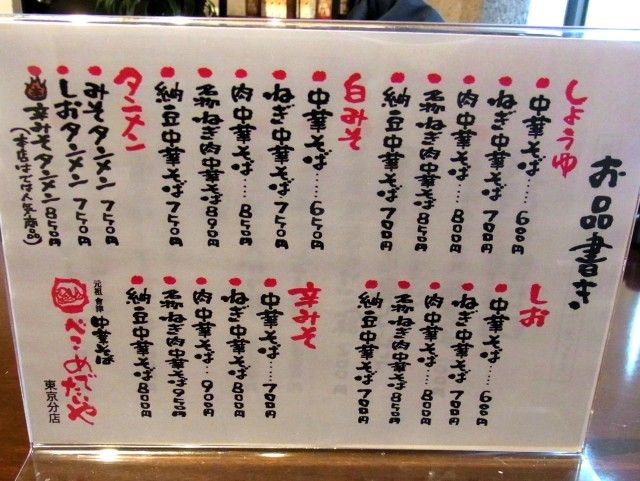 お品書き
しょうゆ
中華そば……600円
ねぎ中華そば…700円
肉中華そば……800円
ねぎ肉中華そば 850円
納豆中華そば 700円
白みそ
中華そば……650円
ねぎ中華そば…750円
肉中華そば……850円
ねぎ肉中華そば
納豆中華そば 750円
タンメン
みそタンメン 750円
しおタンメン 750円
辛みそタンメン 850円
しお
中華そば……600円
ねぎ中華そば…700円
肉中華そば……800円
ねぎ肉中華そば 850円
納豆中華そば 700円
辛みそ
中華そば……700円
ねぎ中華そば…800円
肉中華そば……900円
ねぎ肉中華そば 950円
納豆中華そば 800円
元祖 会津 中華そば
めでたいや
東京分店